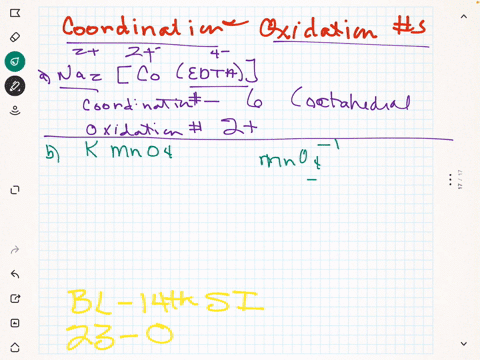 Coordination Oxidation #s
2+ 2+ 4-
a) Na2 [Co (EDTA)]
Coordination# - 6 (octahedral
Oxidation # 2+
b) K MnO4 MnO4 -1
BL-14th SI
23-0
17 / 17